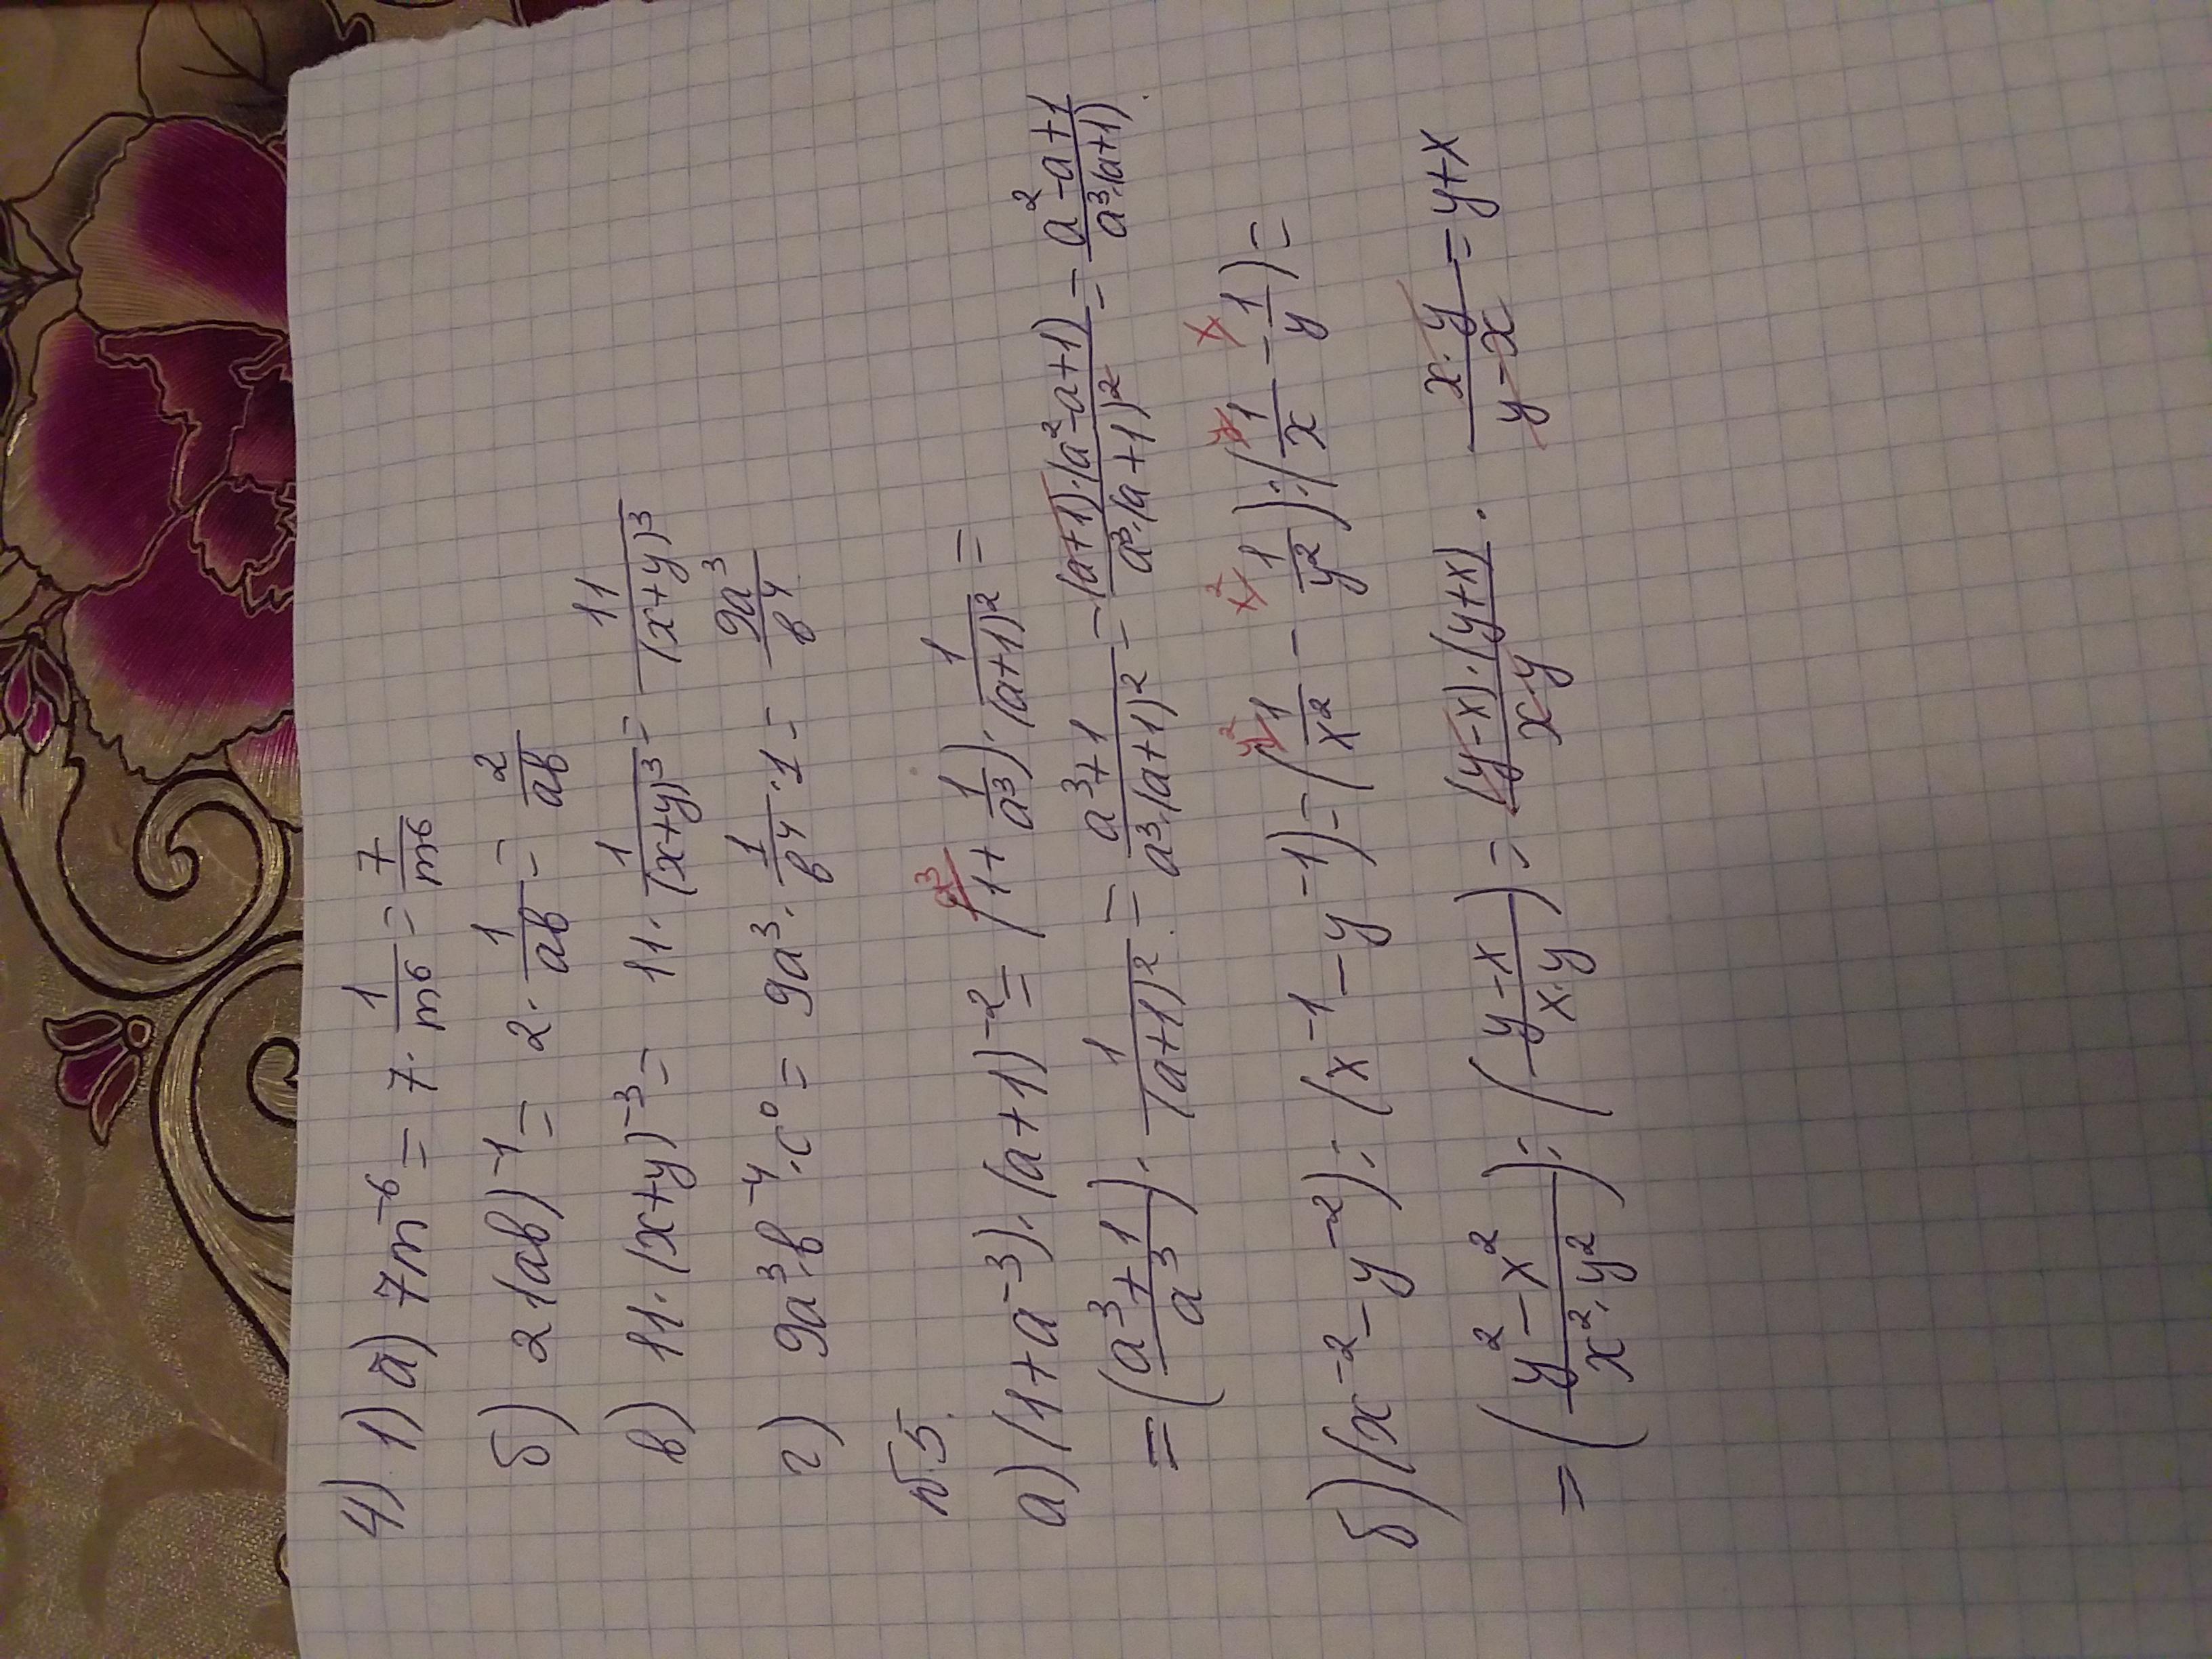 4) 1) а) 7m⁻⁶ = 7 · 1/m⁶ = 7/m⁶
б) 2(ав)⁻¹ = 2 · 1/ав = 2/ав
в) 11·(x+y)⁻³ = 11 · 1/(x+y)³ = 11/(x+y)³
г) 9a³·в⁻⁴·c⁰ = 9a³ · 1/в⁴ · 1 = 9a³/в⁴
№5.
а) (1+a⁻³)·(a+1)⁻² = (1 + 1/a³) · 1/(a+1)² =
= (a³+1/a³) · 1/(a+1)² = a³+1/a³·(a+1)² = (a+1)·(a²-a+1)/a³·(a+1)² = a²-a+1/a³·(a+1)
б) (x⁻² - y⁻²) : (x⁻¹ - y⁻¹) = (1/x² - 1/y²) : (1/x - 1/y) =
= (y² - x²/x²·y²) : (y-x/x·y) = (y-x)·(y+x)/x·y · x·y/y-x = y+x